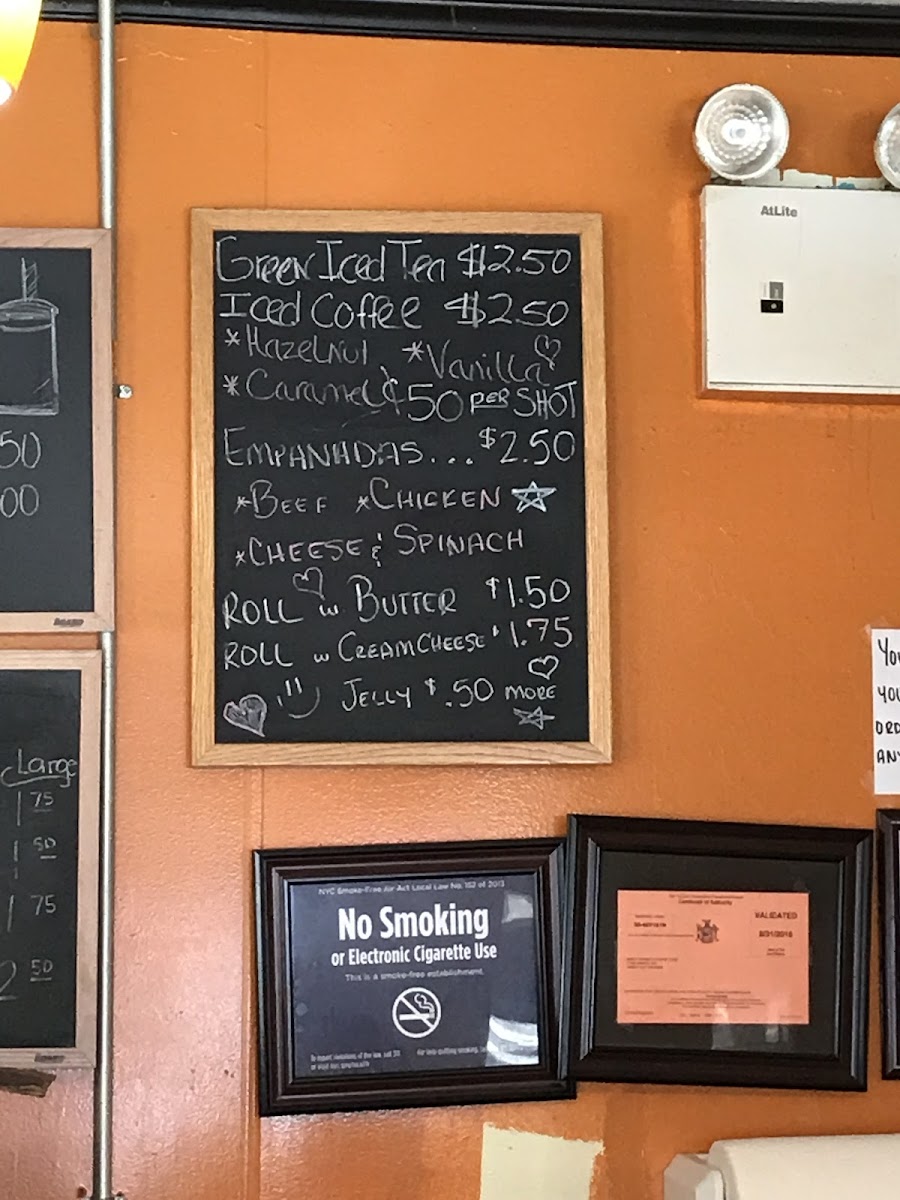 Green Iced Tea $2.50
Iced Coffee $2.50
*Hazelnut *Vanilla
*Caramel ¢50 PER SHOT
EMPANADAS... $2.50
*BEEF *CHICKEN
*CHEESE & SPINACH
ROLL w BUTTER $1.50
ROLL w CREAMCHEESE $1.75
JELLY $.50 MORE
50
00
Large
1 75
1 50
1 75
2 50
AtLite
YOU
ORD
AN
NYC Smoke-Free Air Act Local Law No. 152 of 2013
No Smoking
or Electronic Cigarette Use
This is a smoke-free establishment.
Certificate of Authority
VALIDATED